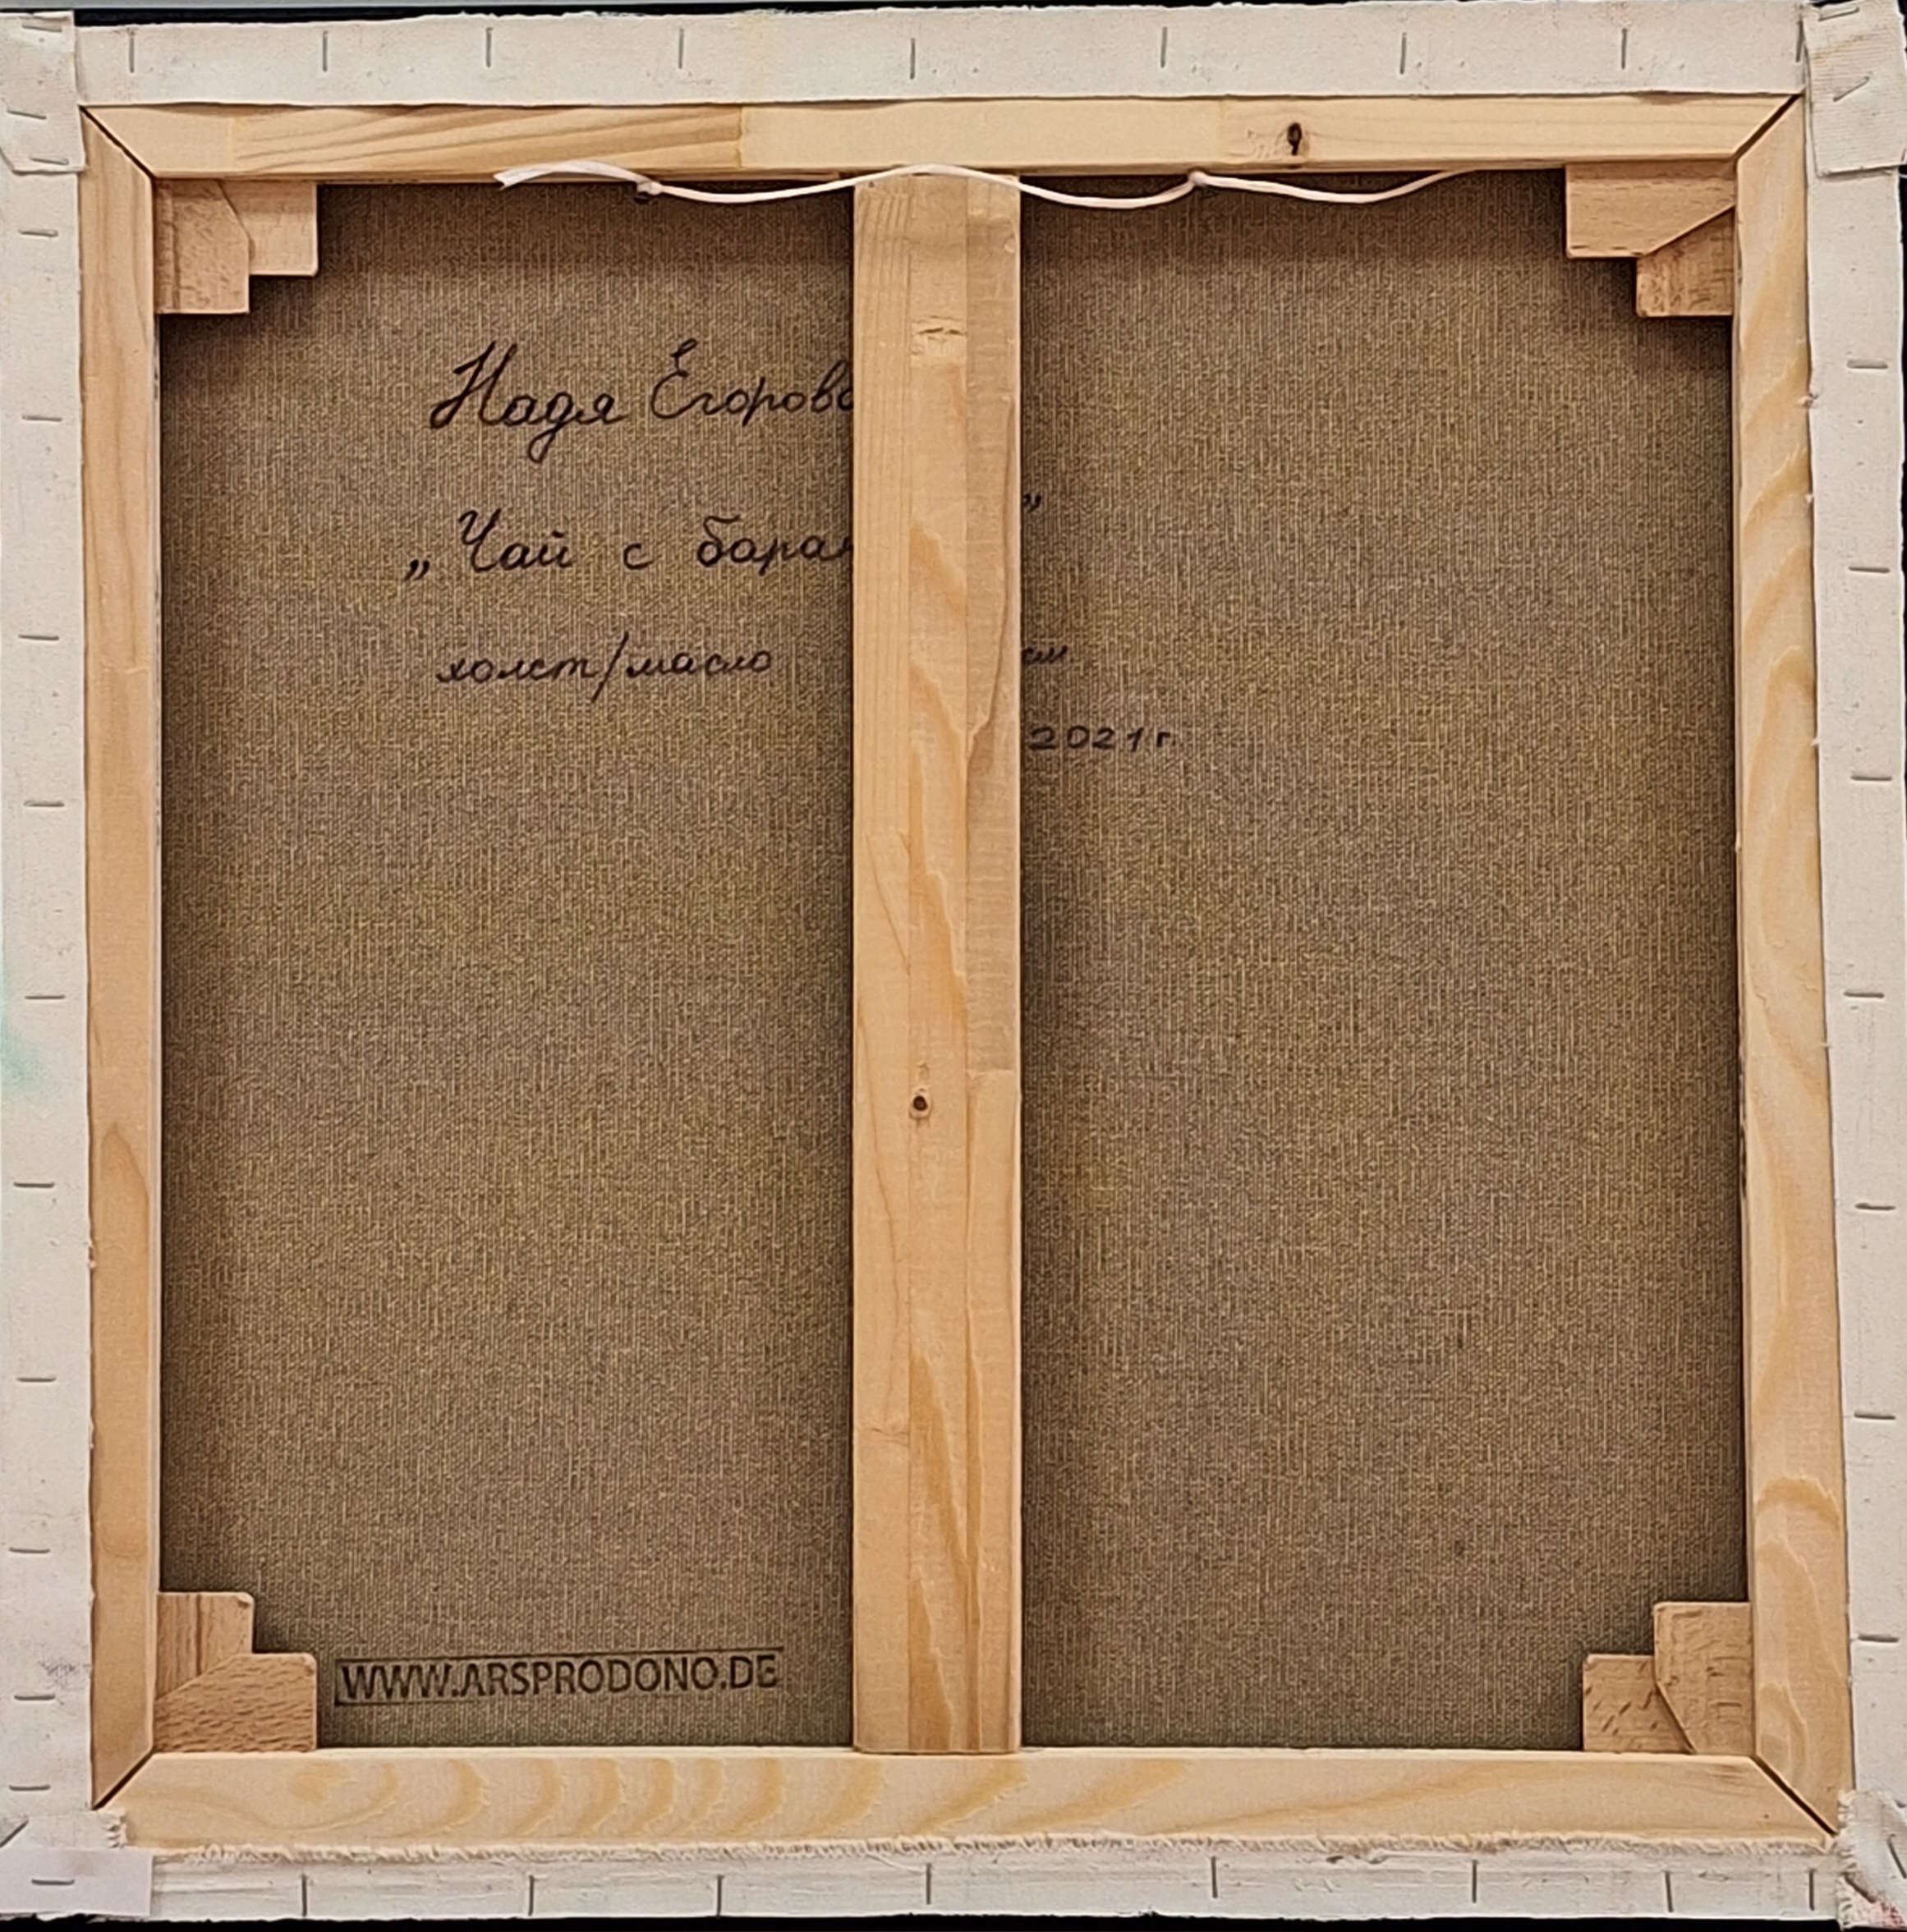 Надя Егорова
„Чай с баран
”
холст/масло см
2021 г.
WWW.ARSPRODONO.DE